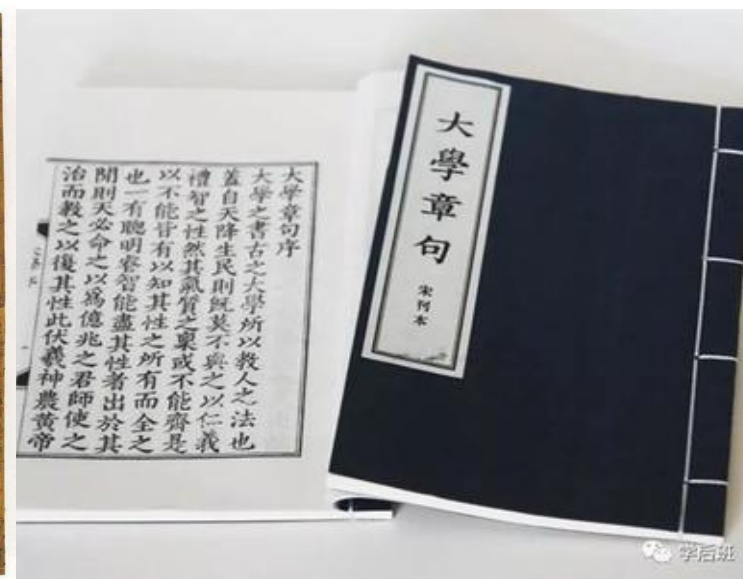 大學章句
宋刊本
大學章句序
大學之書古之大學所以教人之法也
蓋自天降生民則既莫不與之以仁義
禮智之性然其氣質之稟或不能齊是
以不能皆有以知其性之所有而全之
也一有聰明睿智能盡其性者出於其
閒則天必命之以爲億兆之君師使之
治而教之以復其性此伏羲神農黃帝
学后班